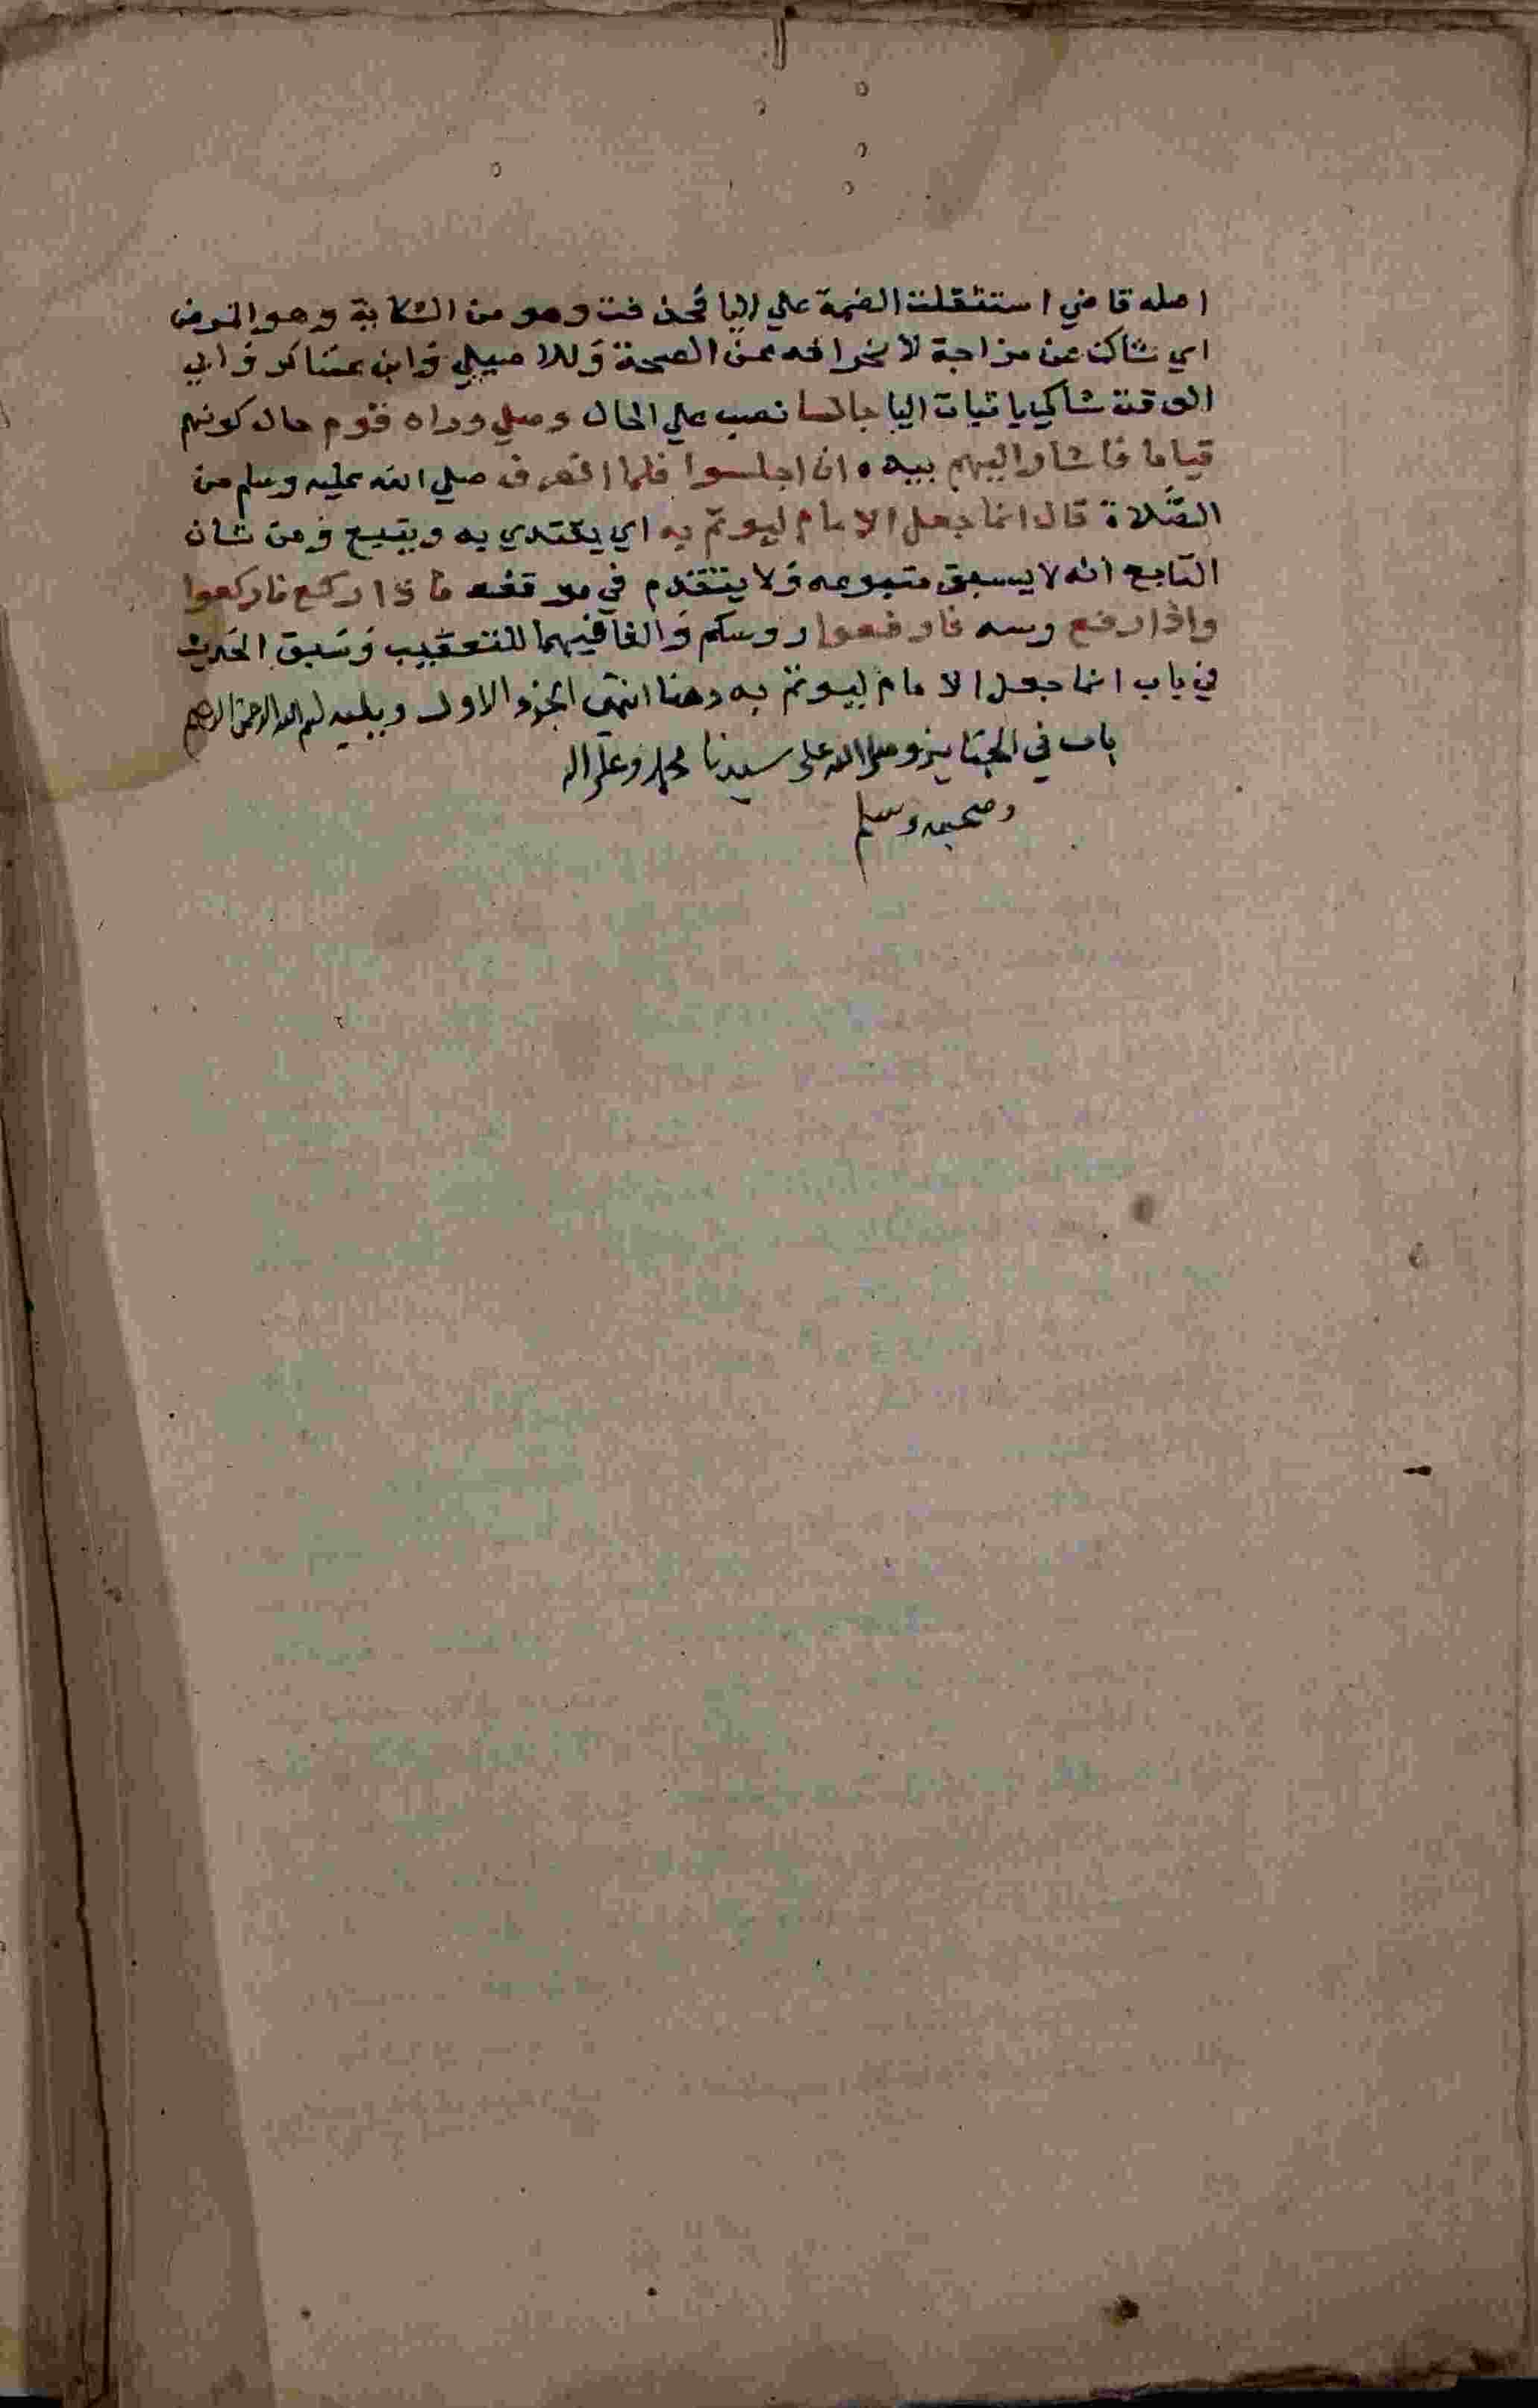 اصله قاضي استثقلت الضمة علي اليا فحذفت وهو من الشكاية وهو المرض
اي شاك عن مزاجة لانحرافه عن الصحة وللاصيلي وابن عساكر وابي
الوقت شاكيا باثبات اليا جالسا نصب علي الحال وصلي وراه قوم حال كونهم
قياما فاشار اليهم بيده ان اجلسوا فلما انصرف صلي الله عليه وسلم من
الصّلاة قال انما جعل الامام ليوتمّ به اي يقتدي به ويتبع ومن شان
التابع انه لا يسبق متبوعه ولا يتقدم في موقفه فاذا ركع فاركعوا
واذا رفع رسه فارفعوا روسكم والفا فيهما للتعقيب وسبق الحديث
في باب انما جعل الامام ليوتمّ به وهنا انتهى الجزو الاول ويليه بسم الله الرحمن الرحيم
باب في الجنايز وصلى الله على سيدنا محمد وعلى اله
وصحبه وسلم